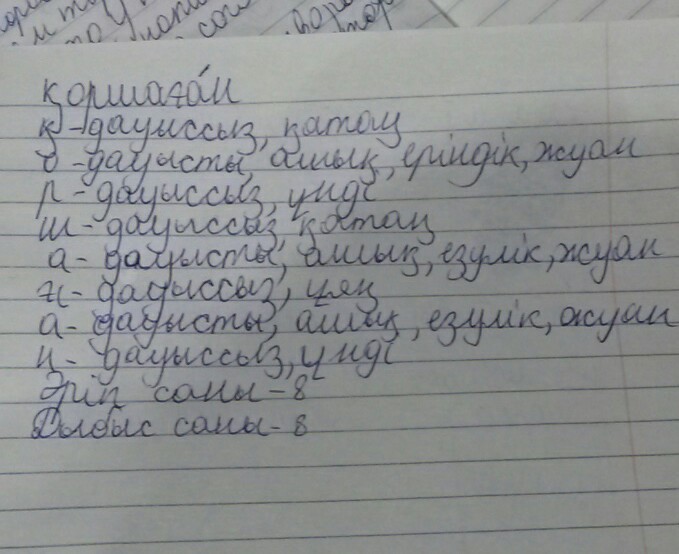 қоршаған
қ - дауыссыз, қатаң
о - дауысты, ашық, еріндік, жуан
р - дауыссыз, үнді
ш - дауыссыз қатаң
а - дауысты, ашық, езулік, жуан
ғ - дауыссыз, ұяң
а - дауысты, ашық, езулік, жуан
н - дауыссыз, үнді
Әріп саны - 8
Дыбыс саны - 8